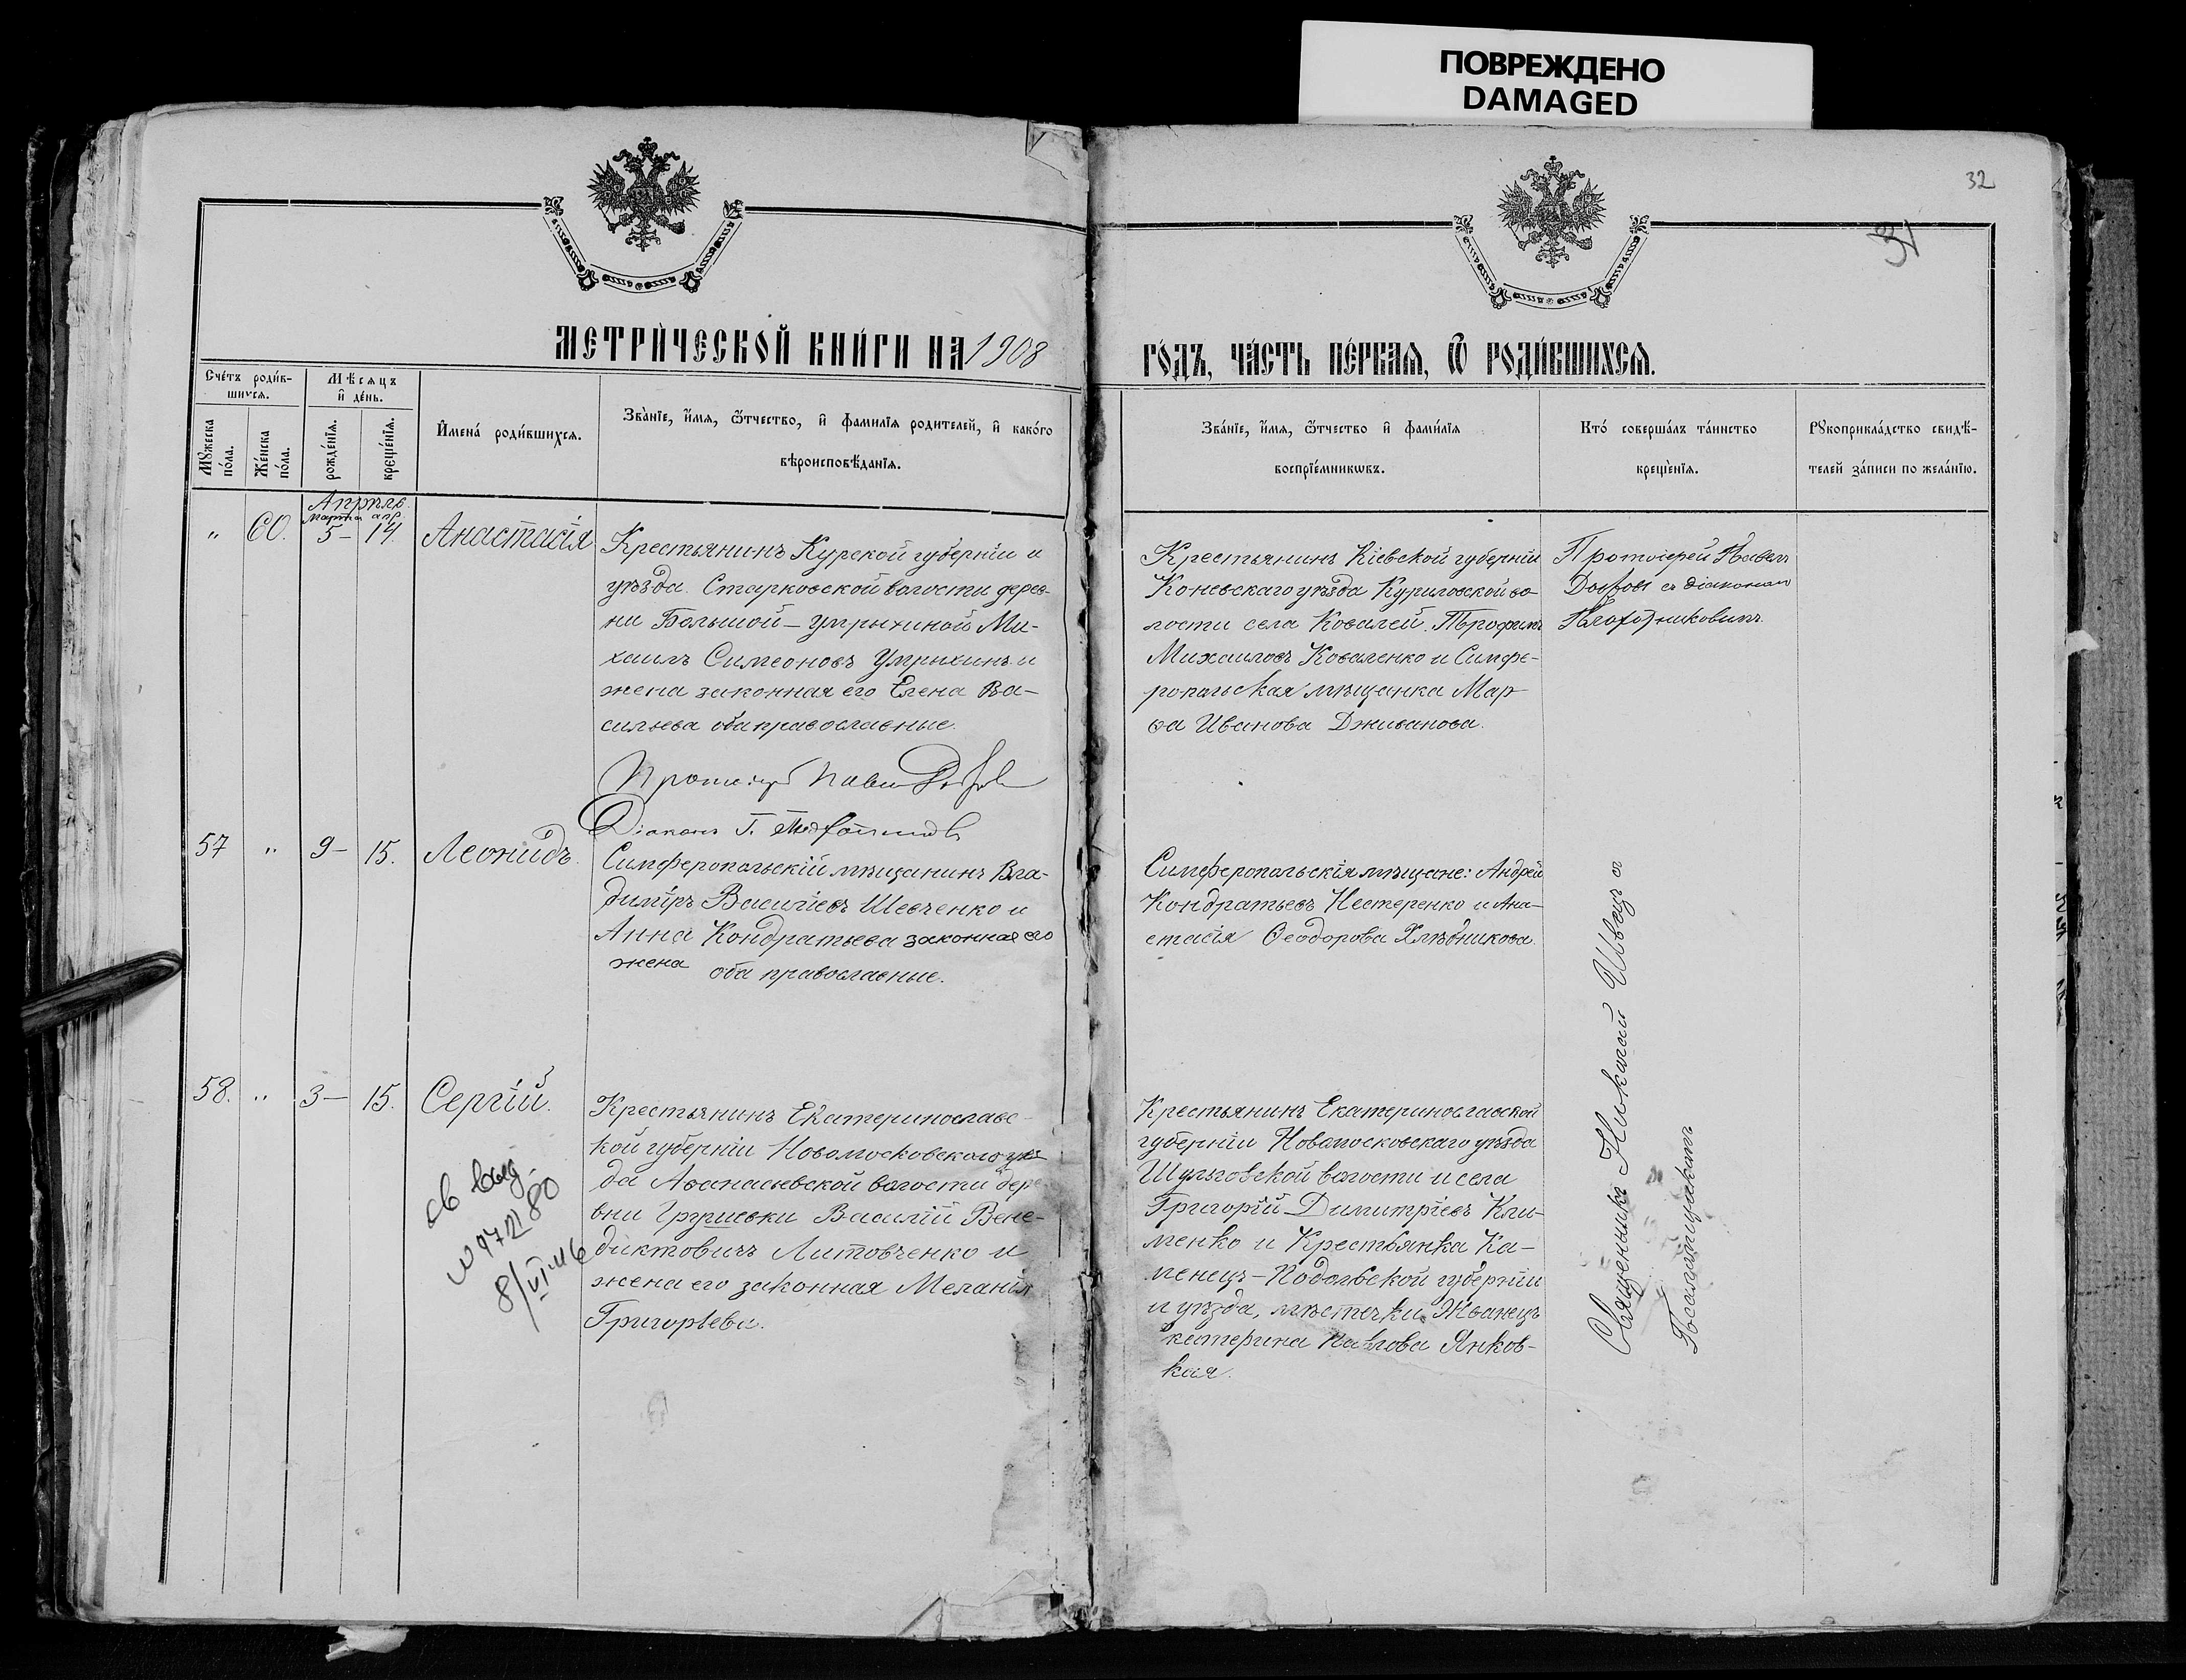 ПОВРЕЖДЕНО
DAMAGED
32
31
МЕТРИ́ЧЕСКОЙ КНИ́ГИ НА 1908
ГО́ДЪ, ЧА́СТЬ ПЕ́РВАѦ, Ѿ РОДИ́ВШИХСѦ.
Сче́тъ роди́в-
шихсѧ.
Мꙋжеска
по́ла.
Же́нска
по́ла.
Мѣсѧцъ
и҆ де́нь.
рожде́нїѧ.
креще́нїѧ.
И҆мена́ роди́вшихсѧ.
Зва́нїе, и҆́мѧ, ѻ҆́тчество, и҆ фами́лїѧ родителей, и҆ како́го
вѣроисповѣ́данїѧ.
Зва́нїе, и҆́мѧ, ѻ҆́тчество и҆ фами́лїѧ
воспрїе́мникѡвъ.
Кто́ соверша́лъ та́инство
креще́нїѧ.
Рꙋкоприкла́дство свидѣ́-
телей за́писи по жела́нїю.
Апрѣль
Марта апр.
" 60. 5– 14. Анастасія
Крестьянинъ Курской губерніи и
уѣзда. Старковской волости дерев-
ни Большой – Умрыхиной Ми-
хаилъ Симеоновъ Умрыхинъ и
жена законная его Елена Ва-
сильева оба православные.
Крестьянинъ Кіевской губерніи
Коневскаго уѣзда Куриловской во-
лости села Ковалей. Трофимъ
Михаиловъ Коваленко и Симфе-
ропольская мѣщанка Мар-
ѳа Иванова Дживанова.
Протоіерей Павелъ
Добровъ съ діакономъ
Протоіер Павел
Діаконъ Г.
57 " 9– 15. Леонидъ.
Симферопольскій мѣщанинъ Вла-
диміръ Василіевъ Шевченко и
Анна Кондратьева законная его
жена оба православные.
Симферопольскія мѣщане: Андрей
Кондратьевъ Нестеренко и Ана-
стасія Ѳеодорова Хлѣбникова.
58. " 3– 15. Сергій.
Крестьянинъ Екатеринославс-
кой губерніи Новомосковскаго уѣз-
да Аѳанасьевской волости дере
вни Грушевки Василій Вене-
диктовичъ Литовченко и
жена его законная Меланія
Григорьева.
св выд
8/VI-46
Крестьянинъ Екатеринославской
губерніи Новомосковскаго уѣзда
Шульговской волости и села
Григорій Димитріевъ Кли-
менко и Крестьянка Ка-
менецъ-Подольской губерніи
и уѣзда, мѣстечки Жванецъ
катерина Павлова Янков-
кая.
Священникъ Николай Швецъ и
Псаломщикъ